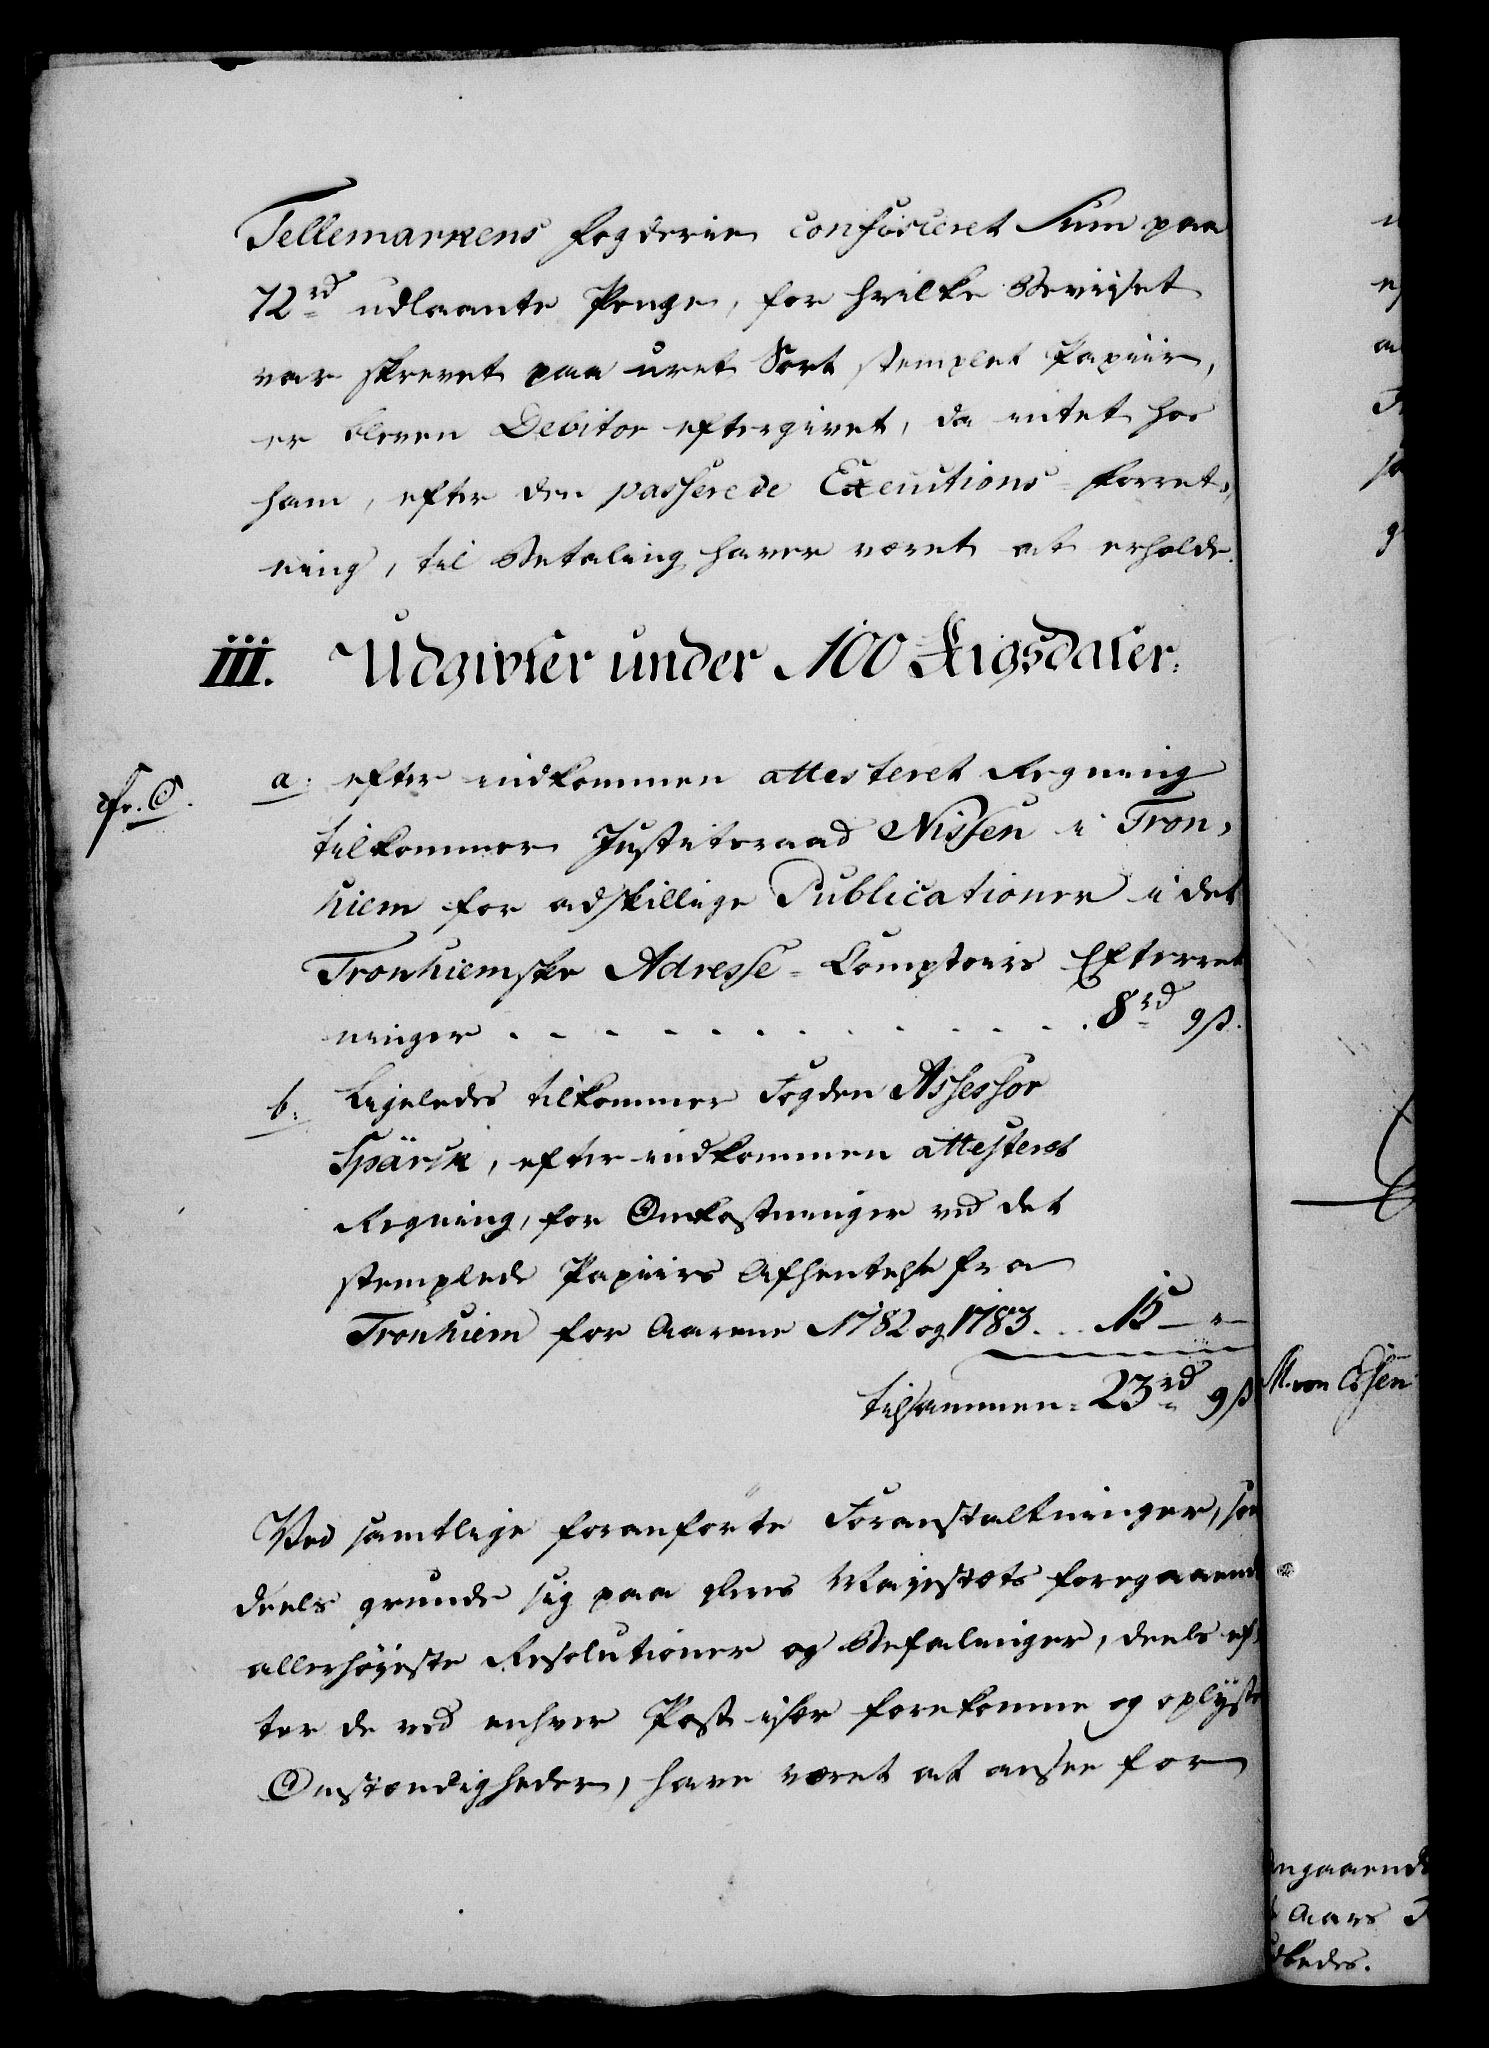 Tellemarkens Fogderie confisceret Sum paa
72 rd udlaante Penge, for hvilke Beviiset
var skrevet paa uret Sort stemplet Papiir,
er bleven Debitor eftergivet, da intet hos
ham, efter den passerede Executions-Forret-
ning, til Betaling haver været at erholde.
III. Udgivter under 100 Rigsdaler.
cfr. C.
a. efter indkommen attesteret Regning
tilkommer Justitsraad Nissen i Tron-
hiem for adskillige Publicationer i det
Tronhiemske Adresse-Comptoirs Efterret
ninger . . . . . . . . . . . . 8 rd 9 ß.
b. Ligeledes tilkommer Fogden Assessor
Spärck, efter indkommen attesteret
Regning, for Omkostninger ved det
stemplede Papiirs Afhentelse fra
Tronhiem for Aarene 1782 og 1783. . . 15 — " —
tilsammen = 23 rd 9 ß
Ved samtlige foranførte Foranstaltninger, som
deels grunde sig paa Deres Majestæts foregaaende
allerhöjeste Resolutioner og Befalinger, deels ef-
ter de ved enhver Post især forekomne og oplÿste
Omstændigheder, have været at ansee for
M. von Essen
ngaaende
Aars